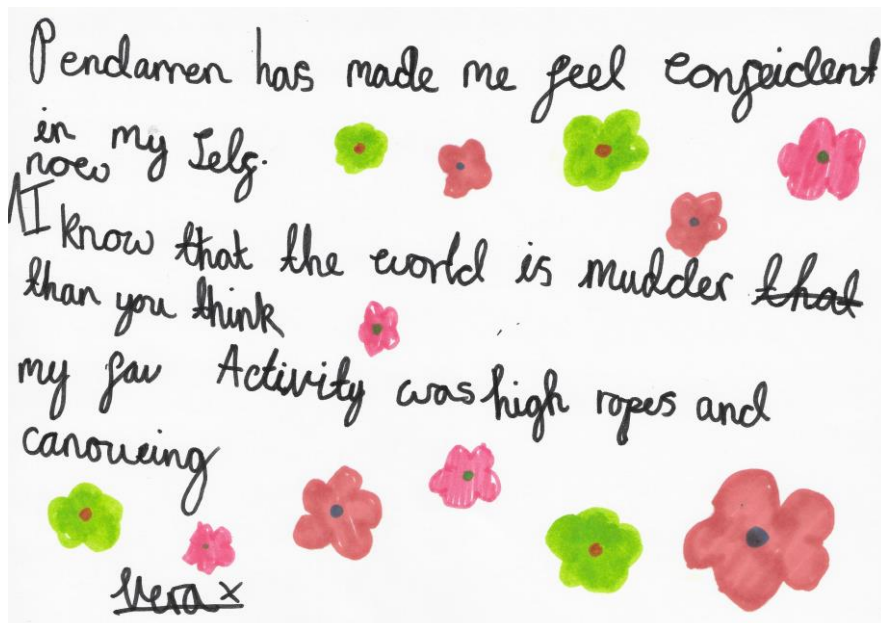 Pendarren has made me feel confeident
in my Self.
now
I know that the world is mudder that
than you think
my fav Activity was high ropes and
canoueing
Vera x